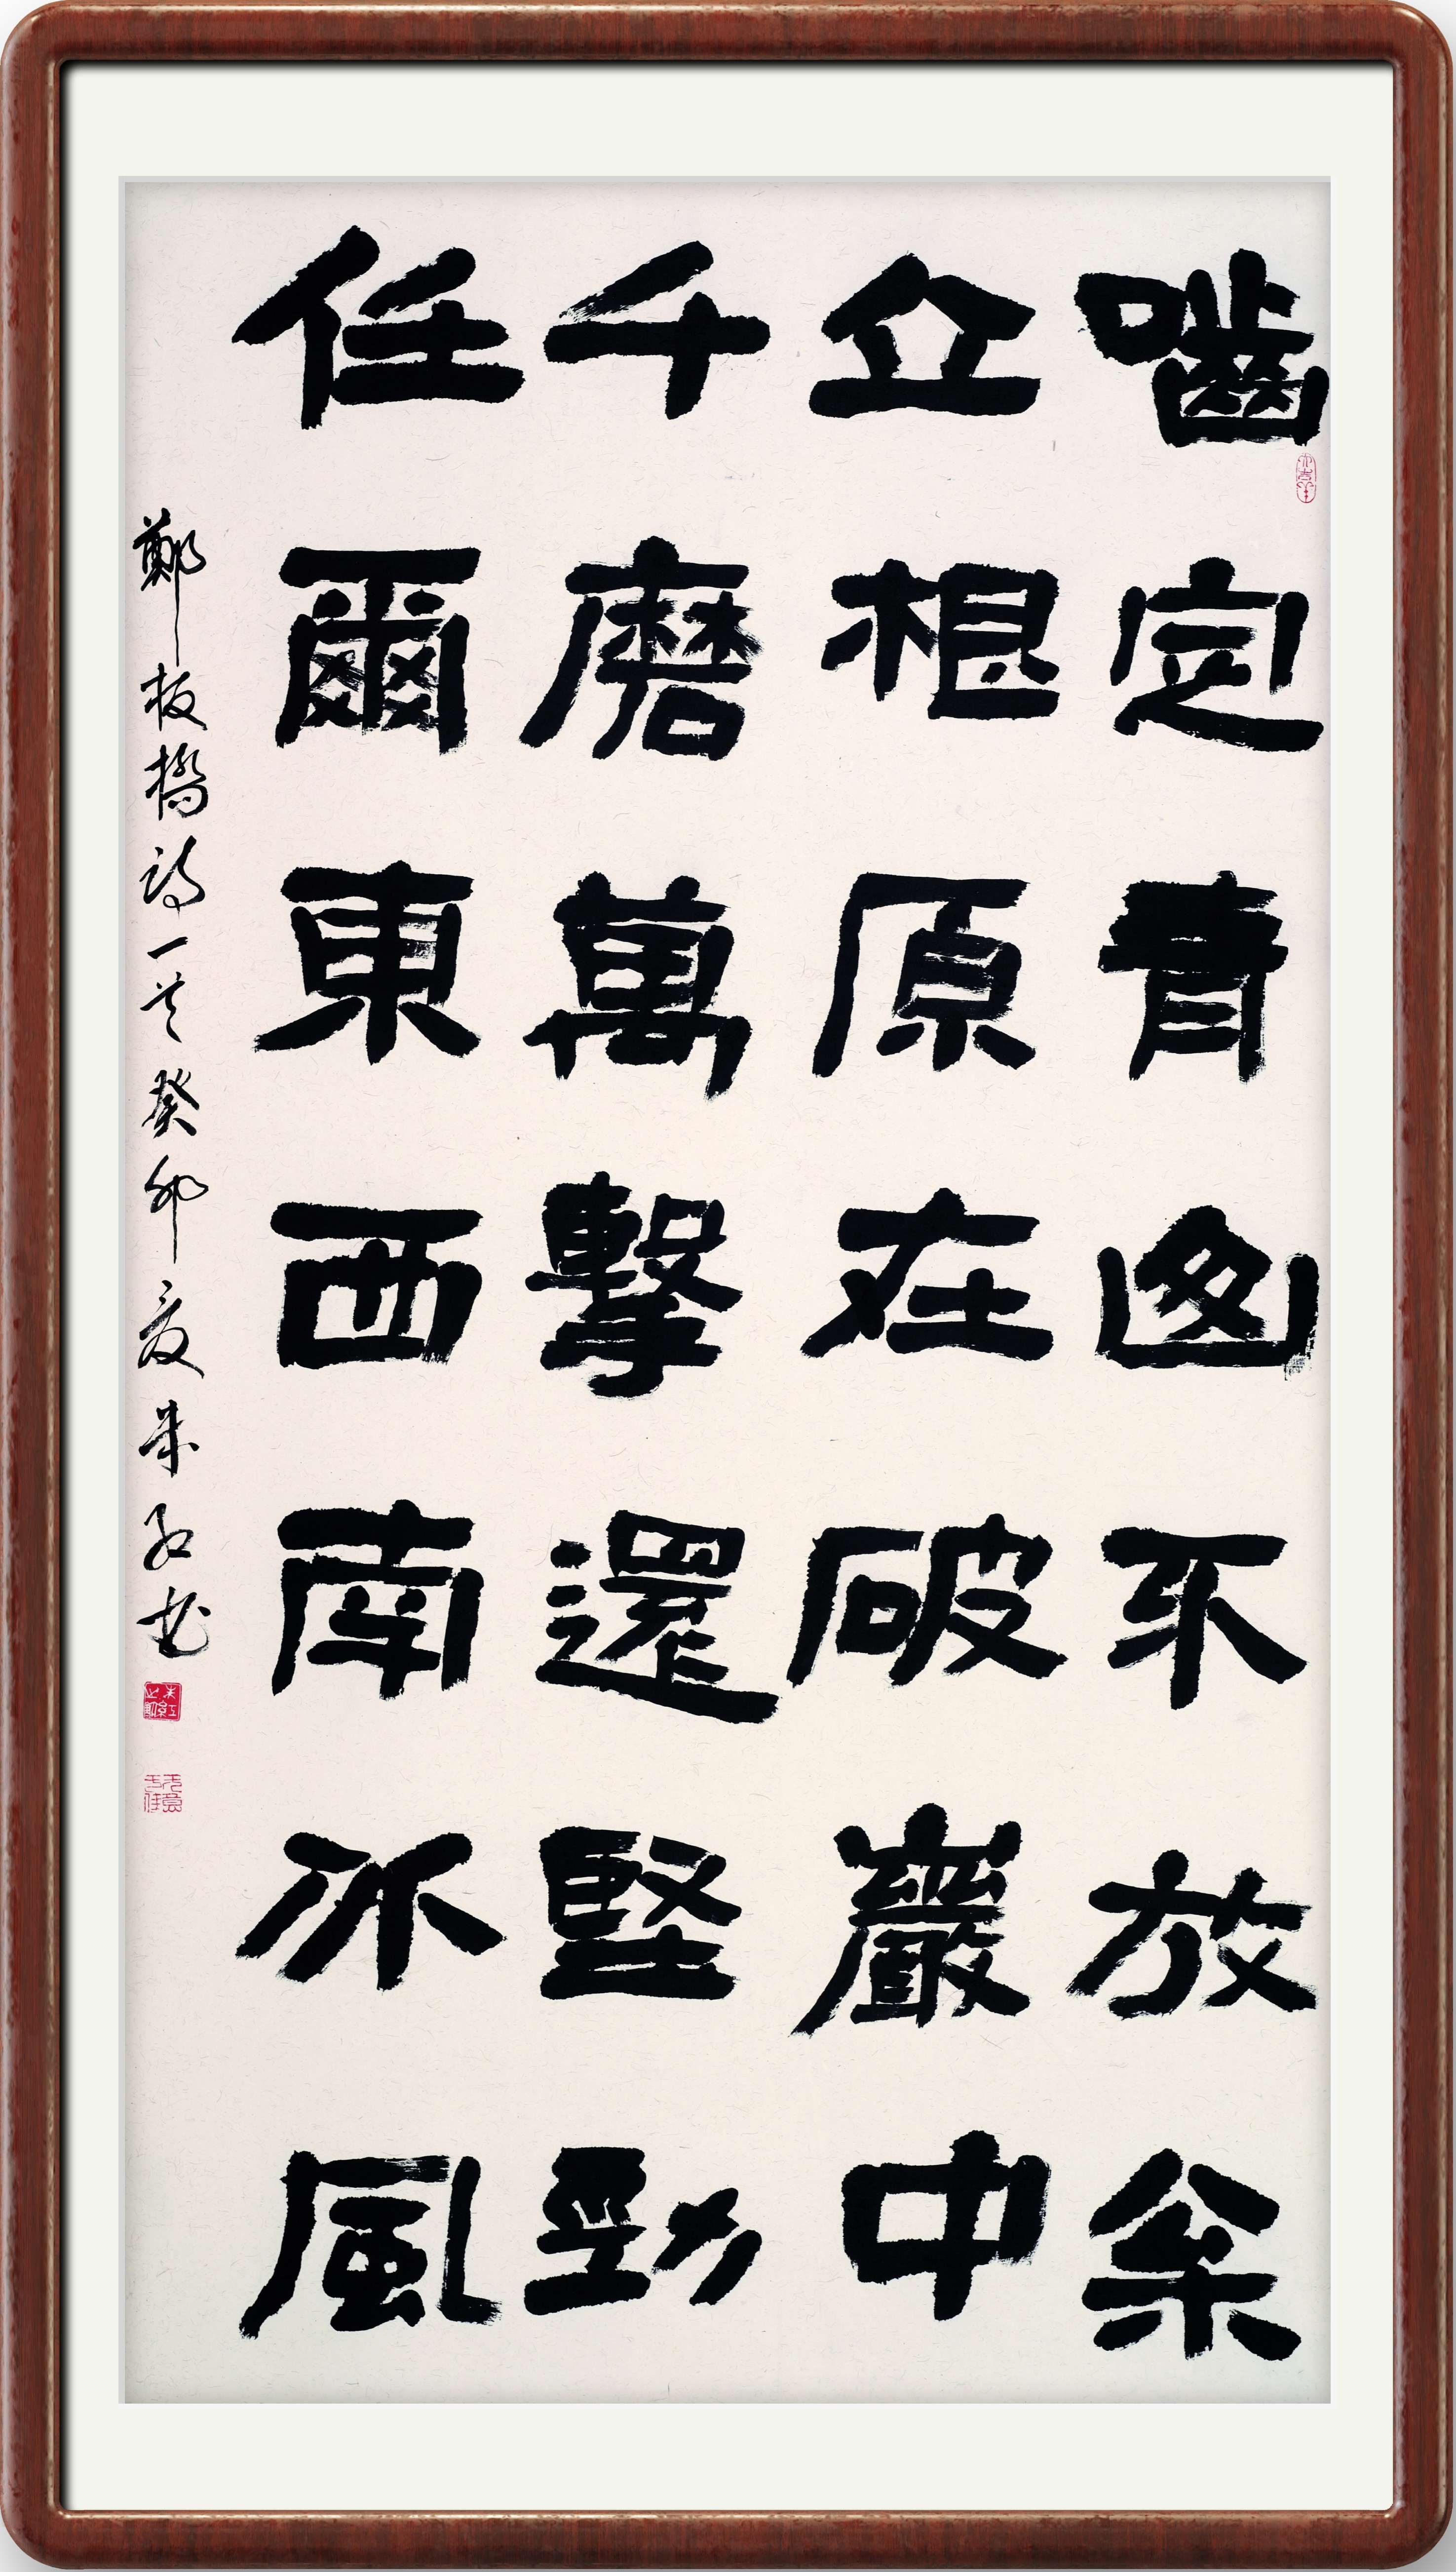 嚙定青山不放枀
立根原在破巖中
千磨萬擊還堅勁
任爾東西南北風
鄭板橋詩一首癸卯夏朱紅書